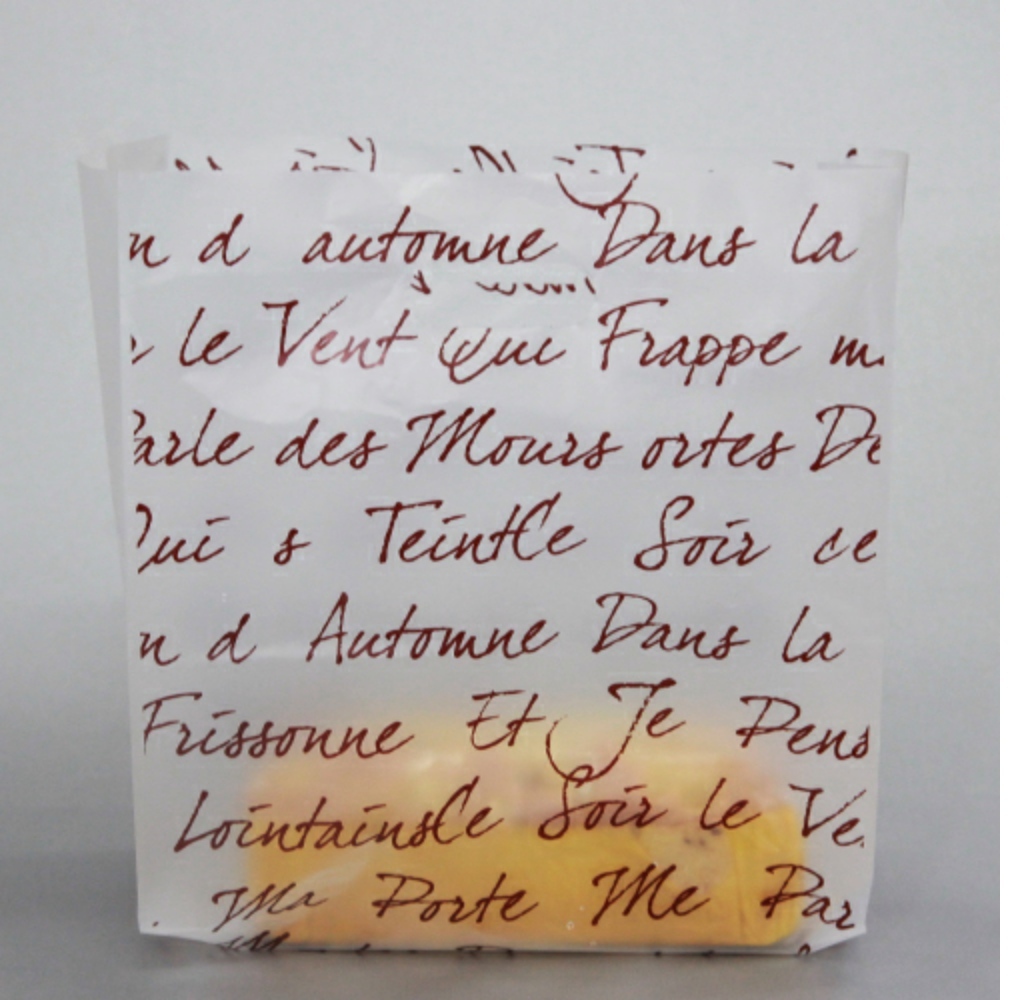 n d automne Dans la
le Vent Que Frappe m
Parle des Mours ortes De
Qui s TeintCe Soir ce
n d Automne Dans la
Frissonne Et Je Pens
LointainsCe Soir le Ve
Ma Porte Me Par